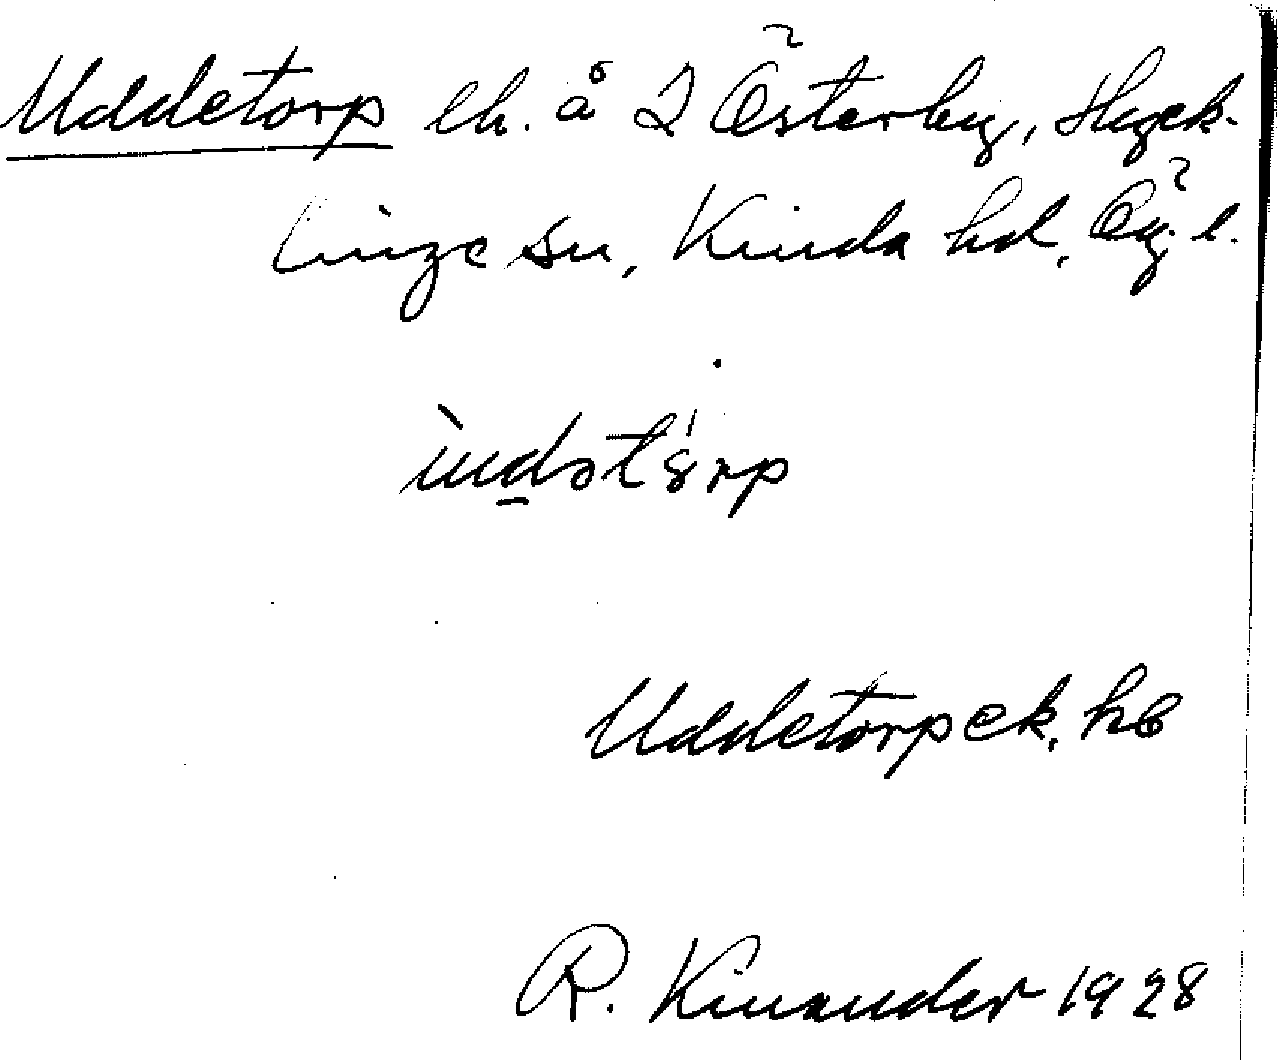 Uddetorp lh. å 2 Österby, Hyck-
linge sn, Kinda hd, Ög. l.
Uddetorp ek. kb
R. Kinander 1928